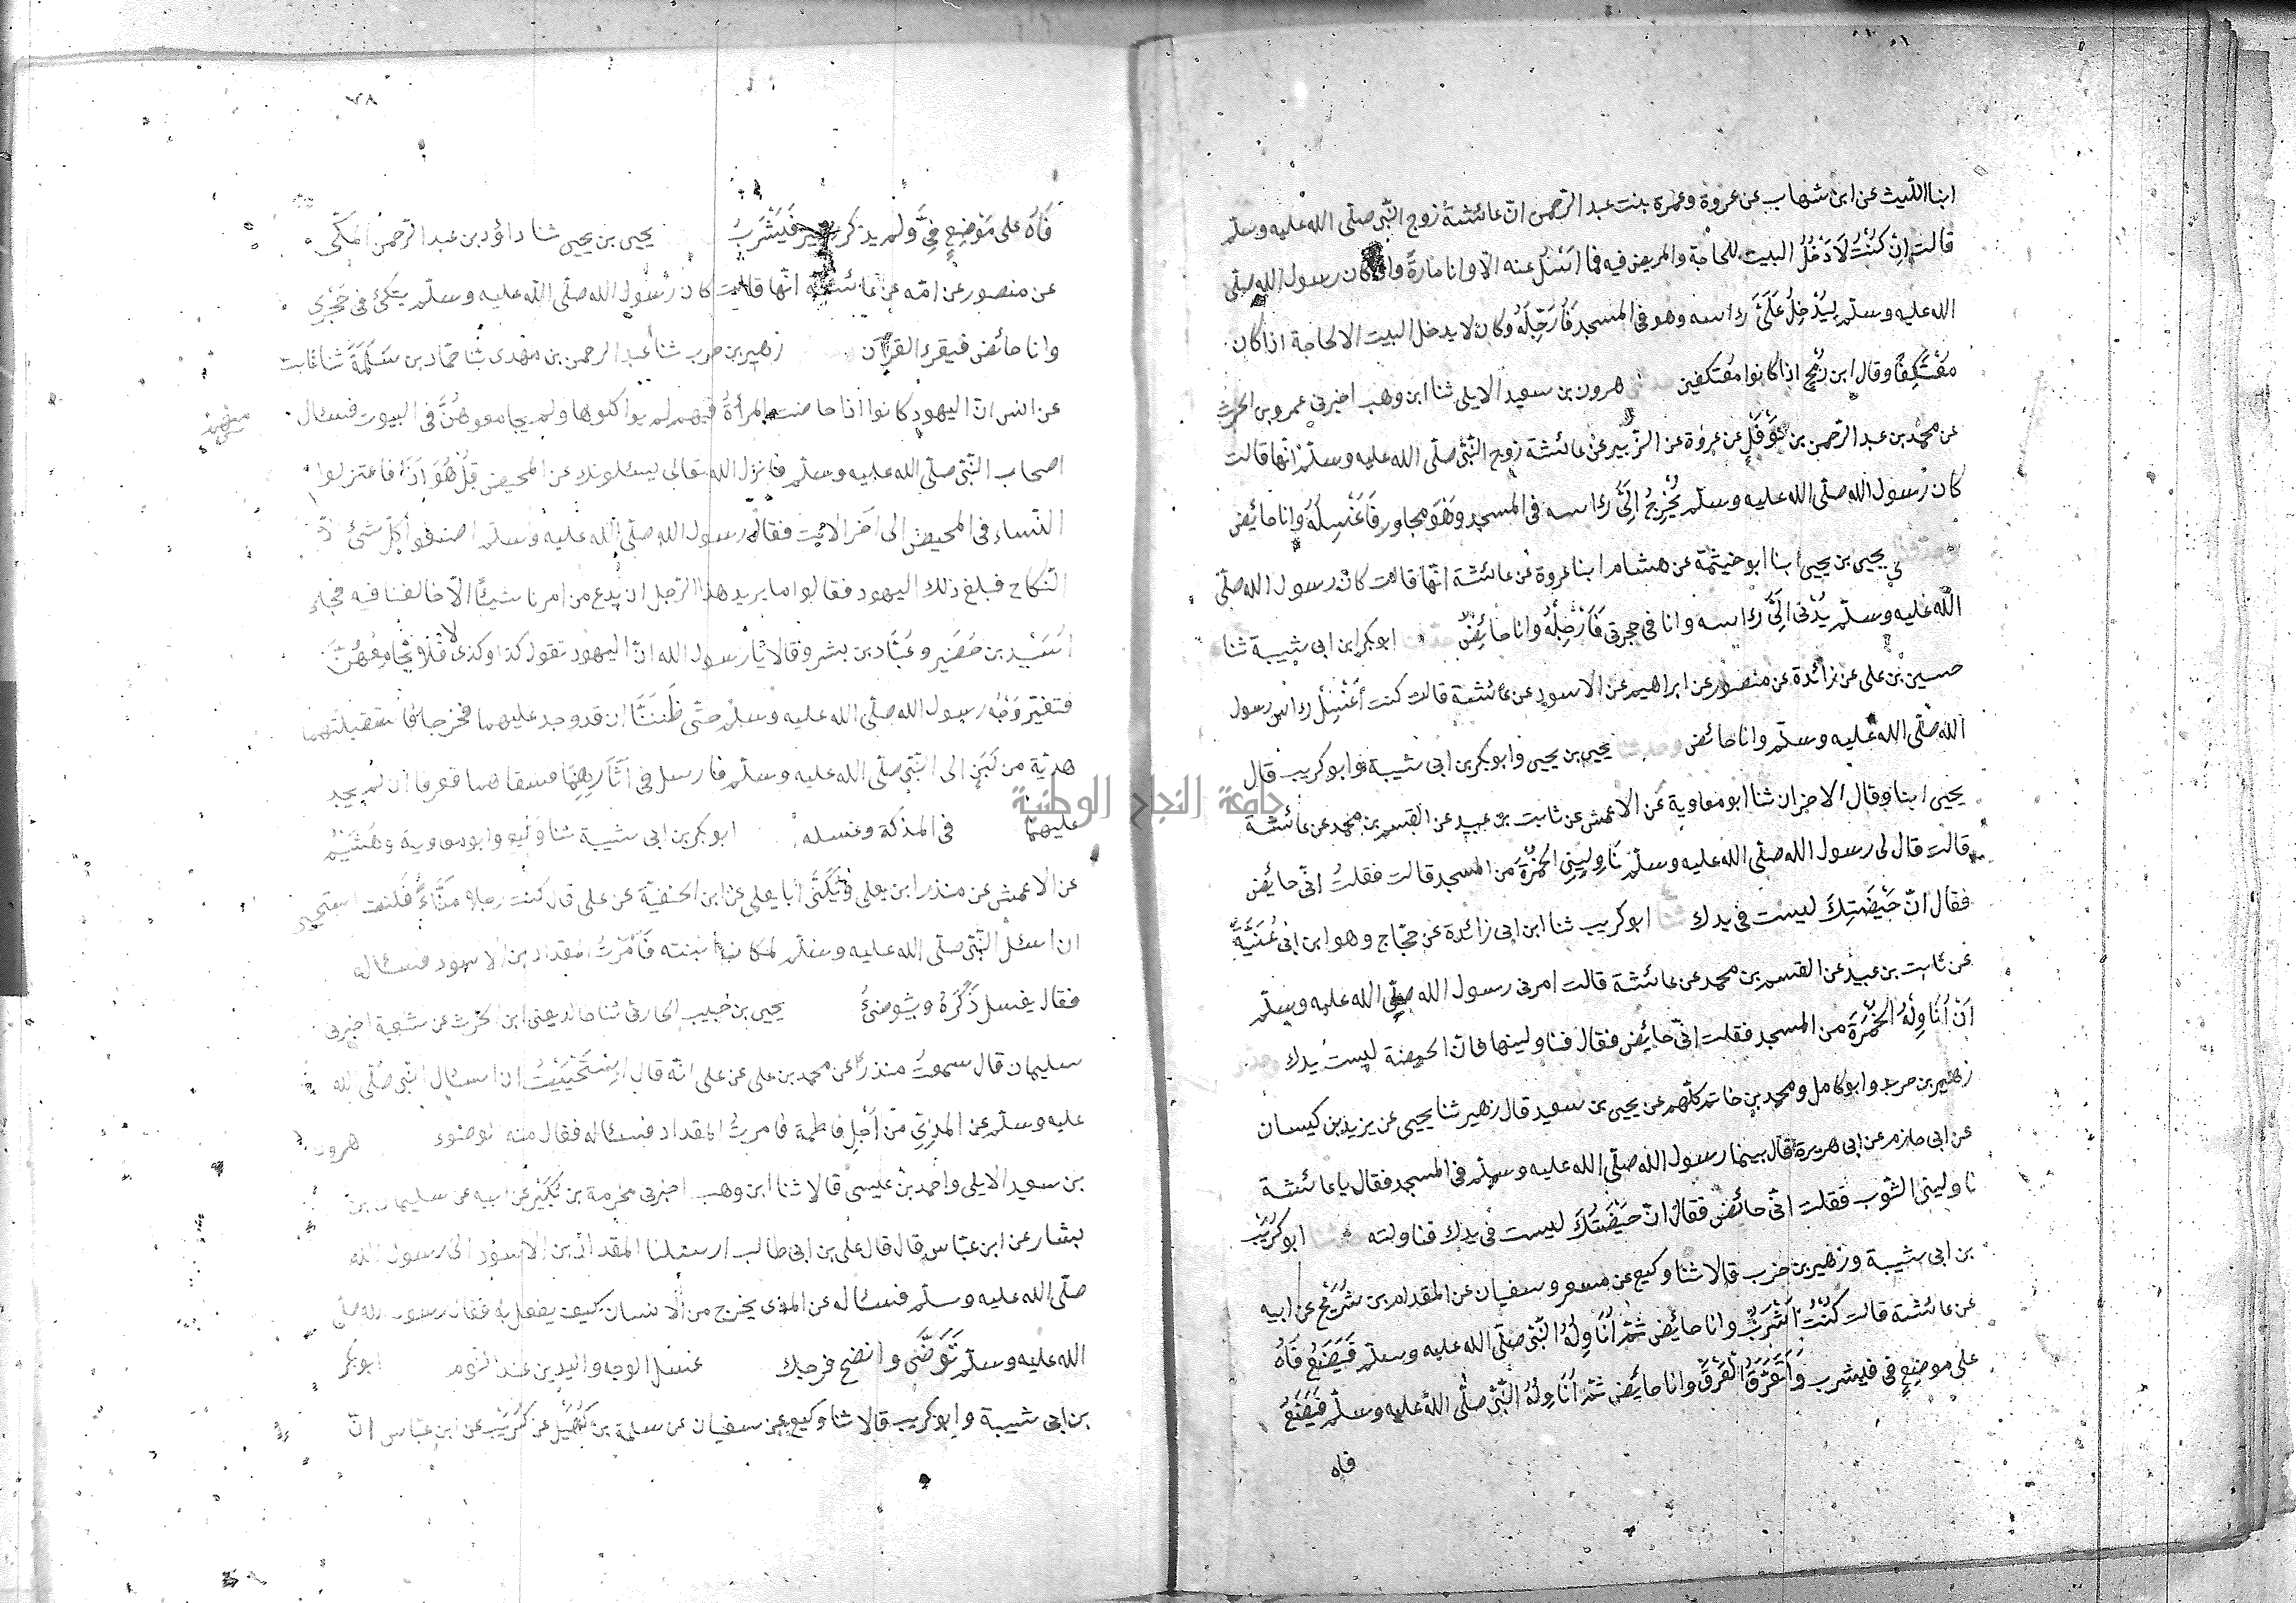 ابنا الليث عن ابن شهاب عن عروة وعمرة بنت عبد الرحمن انّ عائشة زوج النّبي صلّى الله عليه وسلّم
قالت اِنْ كُنْتُ لَاَدْخُلُ البيت للحاجة والمريض فيه فما اَسْئَلُ عنه الّا وانا مارةٌ وان كان رسول الله صلّى
الله عليه وسلّم لِيُدْخِلُ عَلَىَّ راسه وهو فى المسجد فَاُرَجِّلُهُ وكان لا يدخل البيت الا لحاجة اذا كان
مُعْتَكِفًا وقال ابن رُمْحٍ اذا كانوا مُعْتكفين هرون بن سعيد الايلى ثنا ابن وهب اخبرنى عمرو بن الحرث
عن محمد بن عبد الرّحمن بن نَوْفَلٍ عن عروة عن الزّبير عن عائشة زوج النّبىّ صلّى الله عليه وسلّم انّها قالت
كان رسول الله صلّى الله عليه وسلّم يُخْرِجُ اِلَىَّ راسه فى المسجد وَهُوَ مجاور فَاَغْسِلُهُ وانا حائض
يحيى بن يحيى ابنا ابو خيثمة عن هشام ابنا عروة عن عائشة انّها قالت كان رسول الله صلّى
الله عليه وسلّم يُدْنى اِلَىَّ راسه وانا فى حجرتى فَاُرَجِّلُهُ وانا حائضٌ ابو بكر ابن ابى شيبة ثنا
حسين بن على عن زائدة عن منصور عن ابراهيم عن الاسود عن عائشة قالت كنت اَغْسِلُ راس رسول
الله صلّى الله عليه وسلّم وانا حائض وحدثنا يحيى بن يحيى وابو بكر بن ابى شيبة وابو كريب قال
يحيى ابنا وقال الاخران ثنا ابو معاوية عن الاعمش عن ثابت بن عبيد عن القسم بن محمد عن عائشة
قالت قال لى رسول الله صلّى الله عليه وسلّم نَاوِلِينِى الْخُمْرَةَ من المسجد قالت فقلتُ انّى حائض
فقال انّ حَيْضَتِكَ ليست فى يدك ثنا ابو كريب ثنا ابن ابى زائدة عن حجّاج وهو ابن ابى غُنَيَّةَ
عن ثابت بن عبيد عن القسم بن محمد عن عائشة قالت امرنى رسول الله صلّى الله عليه وسلّم
اَنْ اُنَاوِلُهُ الْخُمْرَةَ من المسجد فقلت انّى حائض فقال فناولينها فانّ الحيضة ليست يدك
زهير بن حرب وابو كامل ومحمد بن حاتم كلّهم عن يحيى بن سعيد قال زهير ثنا يحيى عن يزيد بن كيسان
عن ابى حازم عن ابى هريرة قال بينما رسول الله صلّى الله عليه وسلّم فى المسجد فقال يا عائشة
ناولينى الثوب فقلت انّى حائض فقال انّ حَيْضَتَكَ ليست فى يدك فناولته ابو كُرَيْب
بن ابى شيبة وزهير بن حرب قالا ثنا وكيع عن مسعر وسفيان عن المقدام بن شُرَيْحٍ عن ابيه
عن عائشة قالت كُنْتُ اَشْرَبُ وانا حائض ثمّ اُنَاوِلُهُ النّبىّ صلّى الله عليه وسلّم فَيَضَعُ فَاهُ
على موضِعِ فى فيشرب وَاَتَعَرَّقُ الْعَرْقَ وانا حائض ثمّ اُنَاوِلُهُ النّبىّ صلّى الله عليه وسلّم فَيَضَعُ
فاه
٧٨
فَاهُ على مَوْضِعِ فِىَّ ولم يذكر زهير فَيَشْرَبُ يحيى بن يحيى ثنا داؤد بن عبد الرّحمن المكّى
عن منصور عن امّه عن عائشة انّها قالت كان رسول الله صلّى الله عليه وسلّم يتكئ فى حَجْرِى
وانا حائض فيقرء القرآن زهير بن حرب ثنا عبد الرحمن بن مهدى ثنا حمّاد بن سَلَمَةَ ثنا ثابت
عن انس انّ اليهود كانوا اذا حاضت المرأةُ فيهم لم يواكلوها ولم يجامعوهُنَّ فى البيوت فسئال
اصحاب النّبىّ صلّى الله عليه وسلّم فانزل الله تعالى يسئلونك عن المحيض قُلْ هُوَ اَذًى فاعتزلوا
النّساء فى المحيض الى آخر الايت فقال رسول الله صلّى الله عليه وسلّم اصنعوا كلّ شئ الّا
النّكاح فبلغ ذلك اليهود فقالوا ما يريد هذا الرّجل ان يدع من امرنا شيئًا الّا خالفنا فيه فجاء
اُسَيْد بن حُضَير وعَبَّاد بن بشر وقالا يا رسول الله انّ اليهود تقول كذا وكذى افلا نُجَامِعُهُنَّ
فتغيّر وَجْهُ رسول الله صلّى الله عليه وسلّم حتّى ظَنَنَّا ان قد وجد عليهما فخرجا فاستقبلتهما
هديّة من لَبَنٍ الى النّبى صلّى الله عليه وسلّم فارسل فى آثَارِهِمَا فسقاهما فعرفا ان لم يجد
عليهما فى المذكة وغسله ابو بكر بن ابى شيبة ثنا وكيع وابو معاوية وهُشَيْم
عن الاعمش عن منذر ابن يعلى وَيُكَنَّى ابا يعلى عن ابن الحنفيّة عن على قال كنت رجلا مَذَّاءً فكنت استحيى
ان اسئل النّبىّ صلّى الله عليه وسلّم لمكان ابنته فَاَمَرْتُ المقداد بن الاسود فسئاله
فقال يغسل ذَكَرَهُ ويتوضئُ يحيى بن حبيب الحارثى ثنا خالد يعنى ابن الحرث عن شعبة اخبرنى
سليمان قال سمعت منذرًا عن محمد بن على عن على انّه قال اِسْتَحْيَيْتُ ان اسئال النّبى صلّى الله
عليه وسلّم عن المذى من اَجْلِ فاطمة فامرتُ المقداد فسئاله فقال منه الوضوء هرون
بن سعيد الايلى واحمد بن عيسى قالا ثنا ابن وهب اخبرنى مخرمة بن بُكَيْر عن ابيه عن سليمان بن
بشار عن ابن عبّاس قال قال على بن ابى طالب ارسلنا المقداد بن الاسود الى رسول الله
صلّى الله عليه وسلّم فسئاله عن المذى يخرج من الانسان كيف يفعل به فقال رسول الله صلّى
الله عليه وسلّم تَوَضَّى وانضح فرجك غسل الوجه واليدين عند النّوم ابو بكر
بن ابى شيبة وابو كريب قالا ثنا وكيع عن سفيان عن سلمة بن كُهَيْل عن كُرَيْب عن ابن عبّاس انّ
جامعة النجاح الوطنية